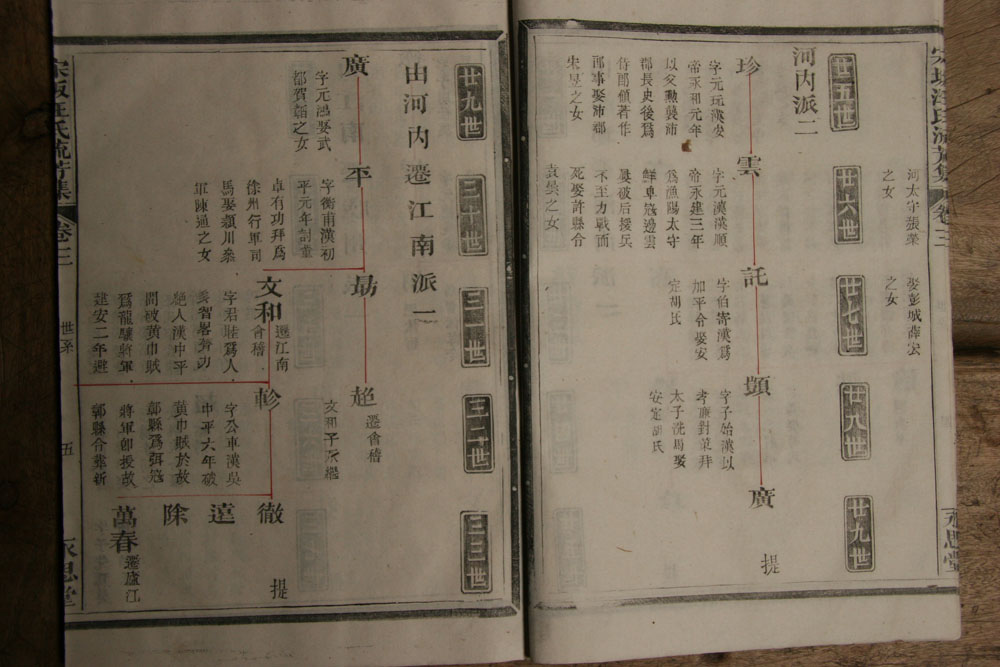 河內派二
廿五世
珍
字元玩漢安
帝永和元年
以父勳襲沛
郡長史後爲
侍郎領著作
郎事娶沛郡
朱昱之女
廿六世
雲
字元漢漢順
帝永建三年
爲漁陽太守
鮮卑寇邊雲
與破后援兵
不至力戰而
死娶許縣令
袁奐之女
廿七世
託
字伯寄漢爲
加平令娶安
定胡氏
廿八世
顗
字子始漢以
孝廉對策拜
太子洗馬娶
安定胡氏
廿九世
廣
提
河太守張榮
之女
娶彭城薛宏
之女
卷三
永思堂
由河內遷江南派一
廿九世
廣
字元
都賀
之女
三十世
平
字衡甫漢初
平元年討董
卓有功拜爲
徐州行軍司
馬娶潁川參
軍陳通之女
三一世
勗
文和
遷江南
會稽
字君睦爲人
多智畧膂力
絕人漢中平
間破黃巾賊
爲龍驤將軍
建安二年避
三二世
超
遷會稽
文和子承繼
軫
字公車漢
中平六年破
黃巾賊於故
鄣縣爲弭寇
將軍卽授故
鄣縣令葬新
三三世
徹
遠
除
萬春
遷廬江
提
汪氏流芳集
卷三
世系
五
永思堂